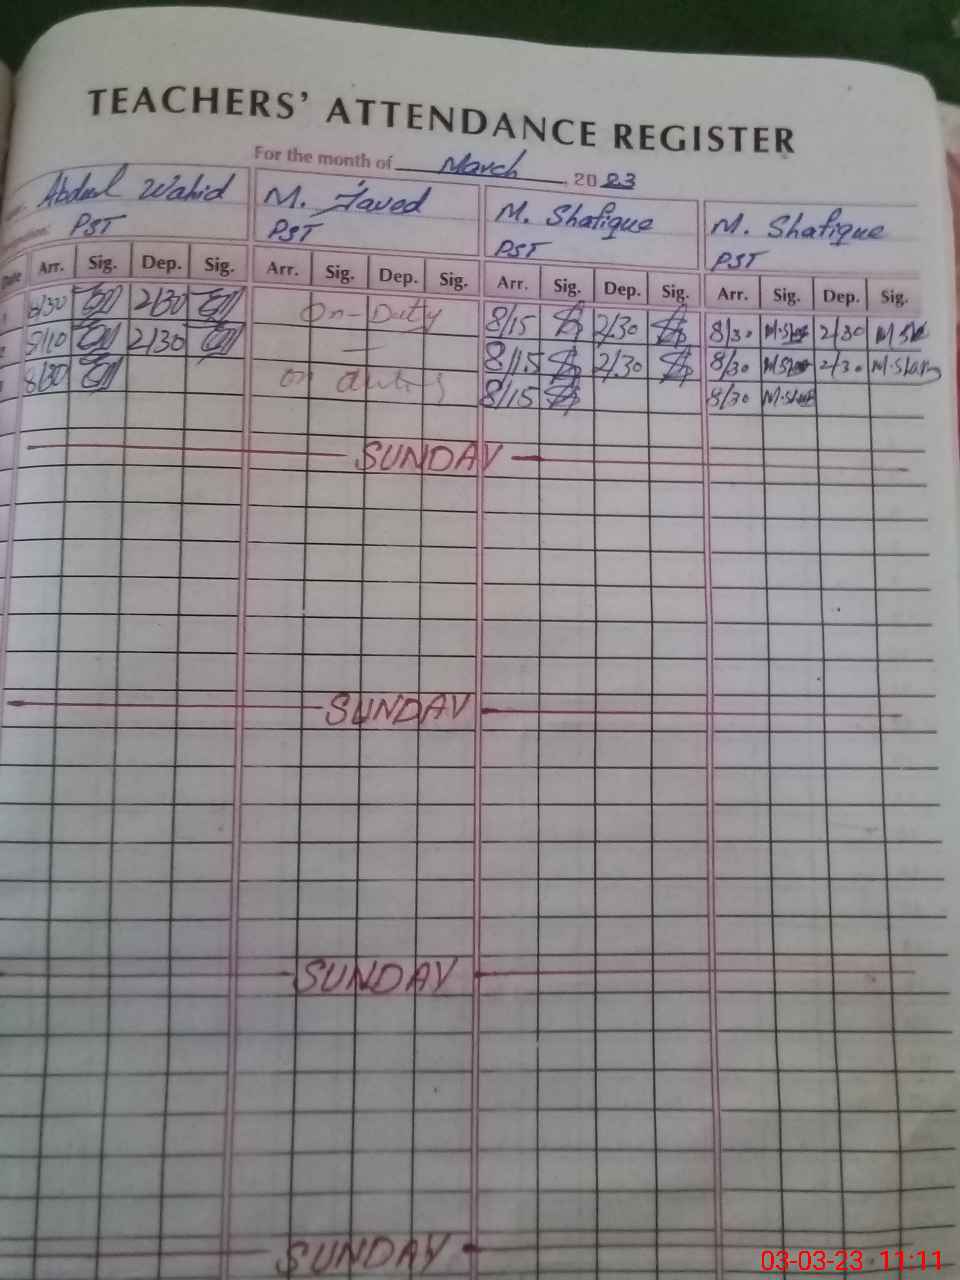 TEACHERS' ATTENDANCE REGISTER
For the month of March, 2023
Abdul Wahid M. Javed M. Shafique M. Shafique
PST PST PST PST
Date Arr. Sig. Dep. Sig. Arr. Sig. Dep. Sig. Arr. Sig. Dep. Sig. Arr. Sig. Dep. Sig.
8/30 2/30 On-Duty 8/15 2/30 8/30 2/30
2/30 — 8/15 2/30 8/30 2/30
8/30 on duty 8/15 8/30
SUNDAY
SUNDAY
SUNDAY
SUNDAY
03-03-23 11:11